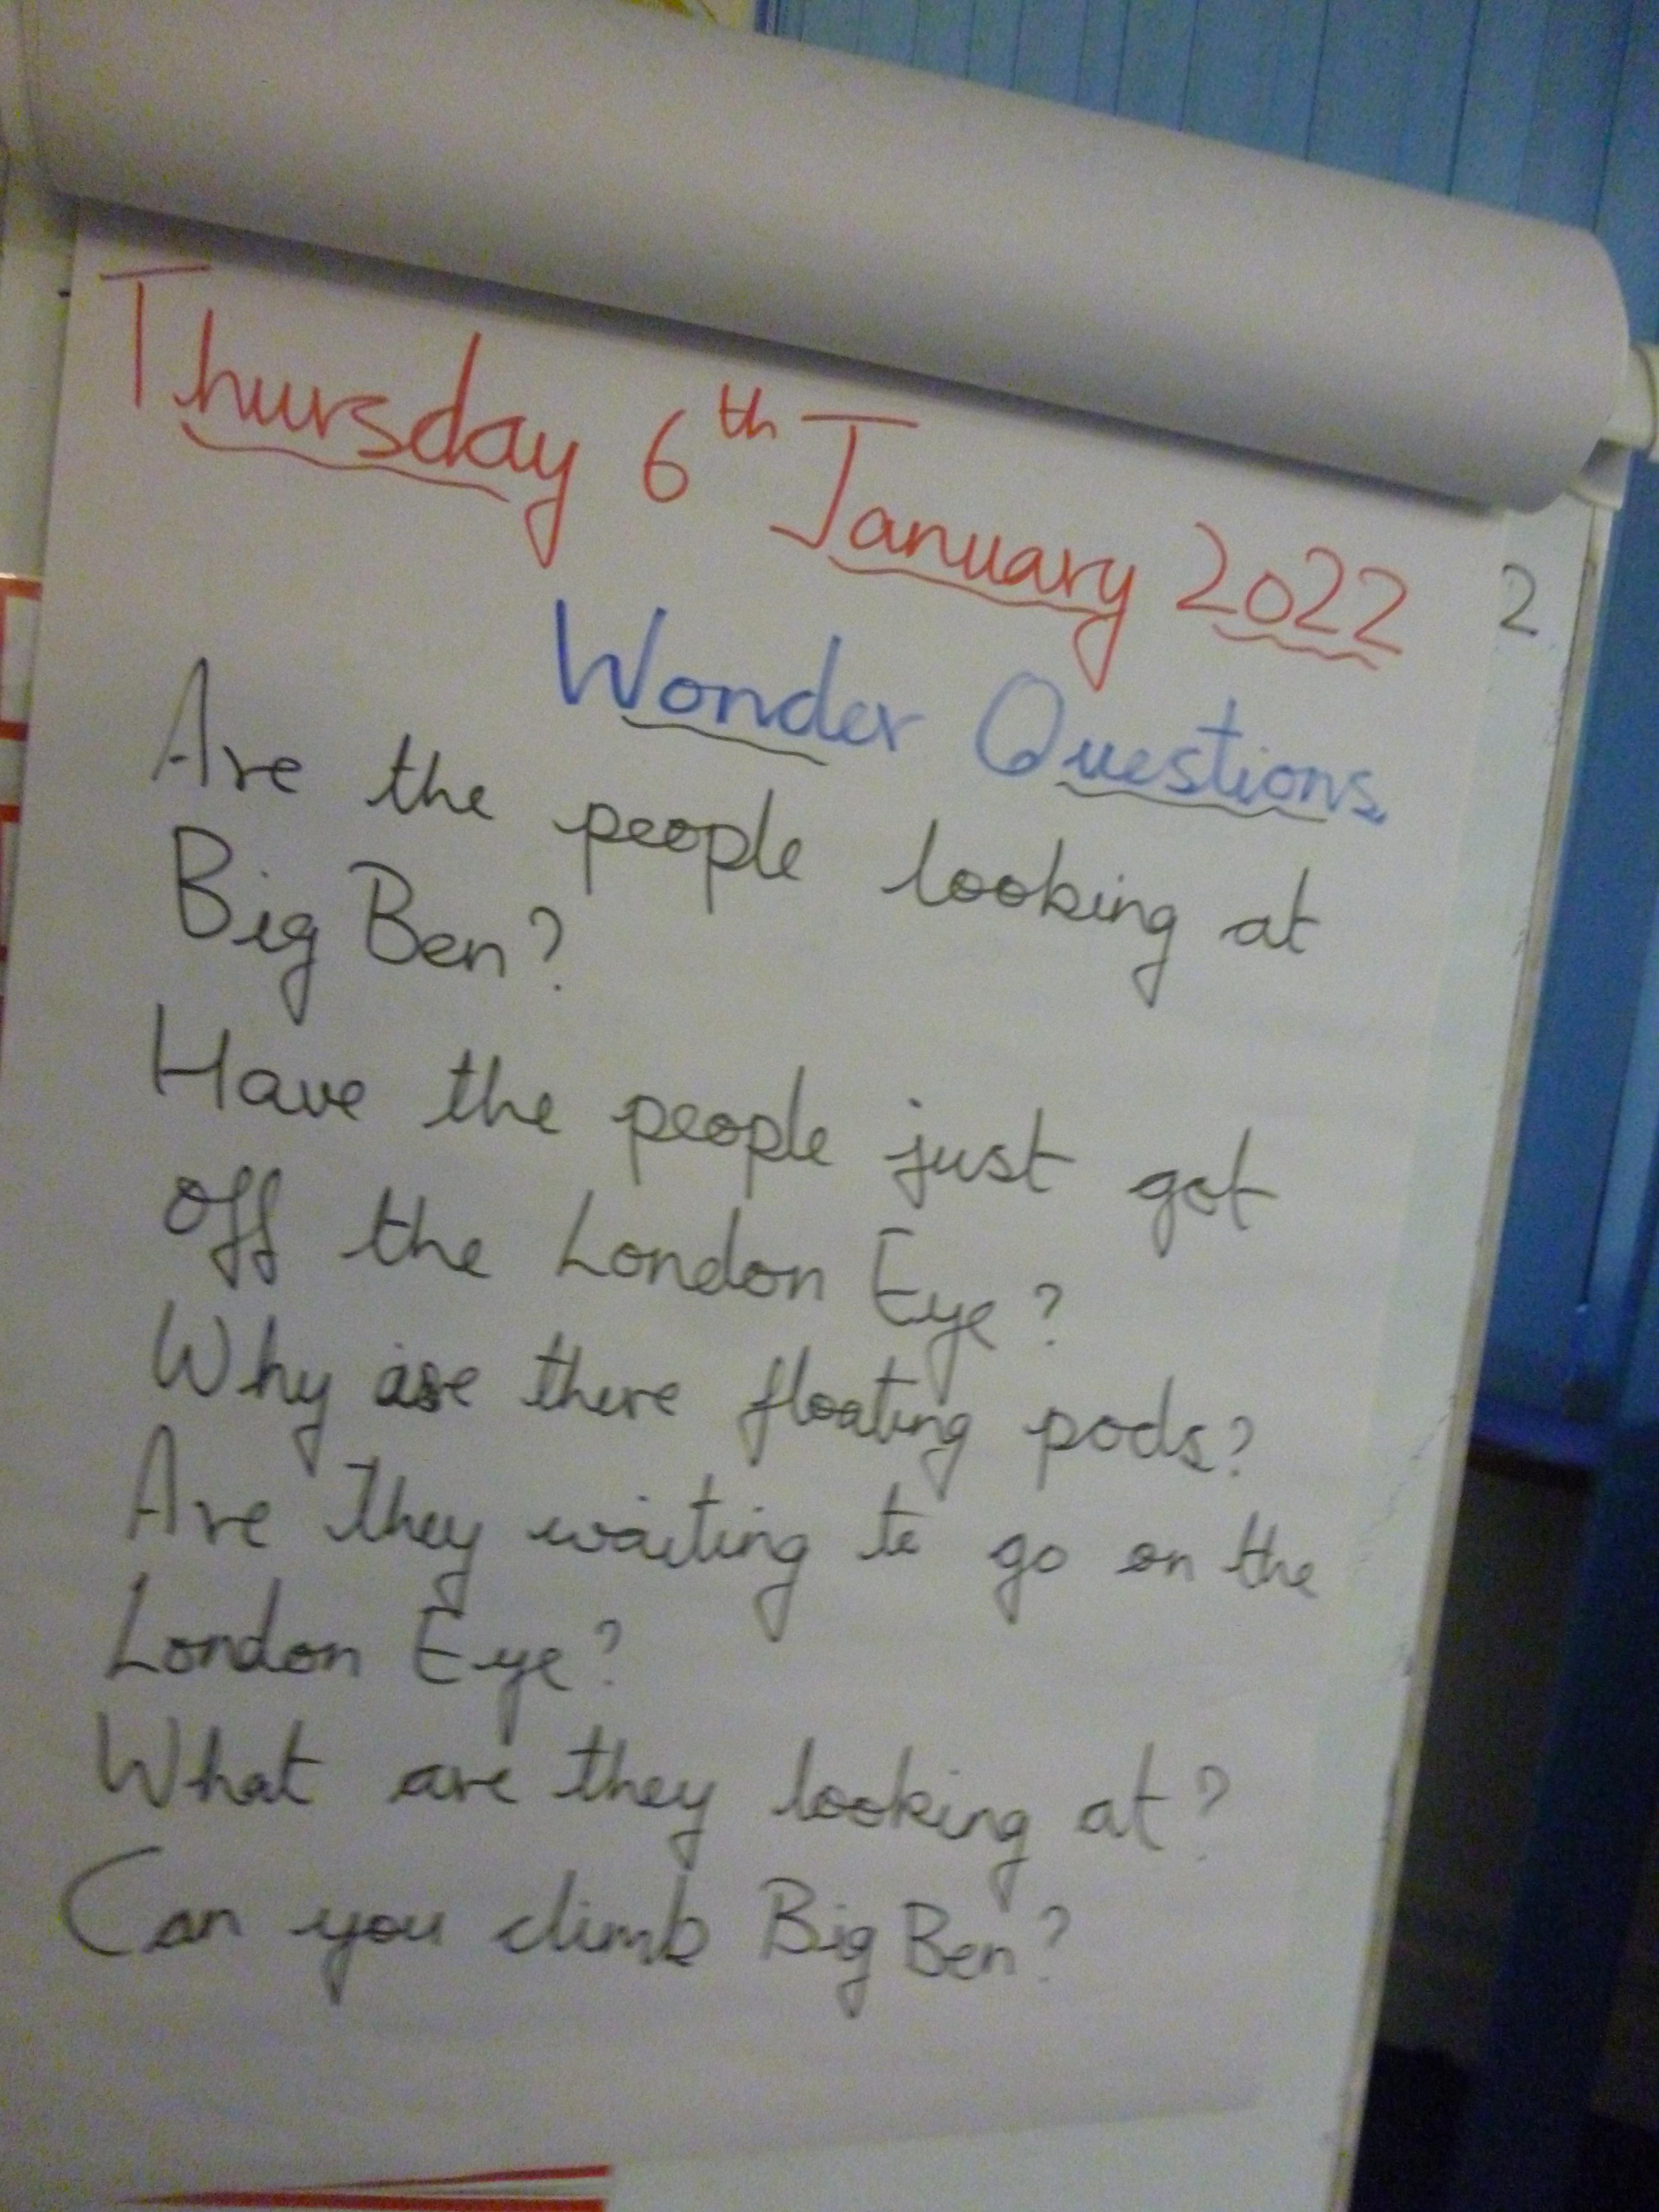 Thursday 6th January 2022
2
Wonder Questions
Are the people looking at
Big Ben?
Have the people just got
off the London Eye?
Why are there floating pods?
Are they waiting to go on the
London Eye?
What are they looking at?
Can you climb Big Ben?